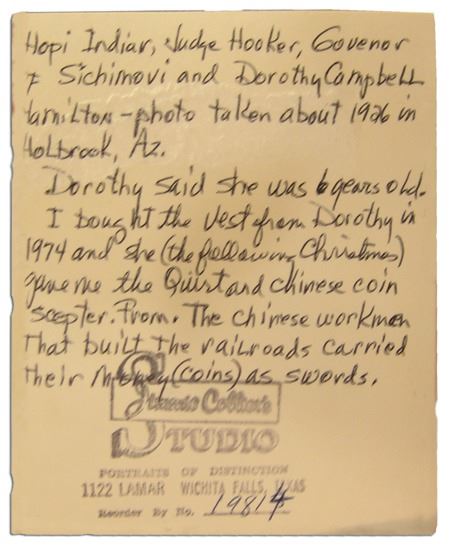 Hopi Indian, Judge Hooker, Govenor
& Sichimovi and Dorothy Campbell
Hamilton - photo taken about 1926 in
Holbrook, Az.
Dorothy said she was 6 years old.
I bought the vest from Dorothy in
1974 and she (the following Christmas)
gave me the Quirt and chinese coin
scepter. From. The chinese workmen
that built the railroads carried
their money (coins) as swords.
STUDIO
PORTRAITS OF DISTINCTION
1122 LAMAR WICHITA FALLS, TEXAS
Reorder By No. 19814